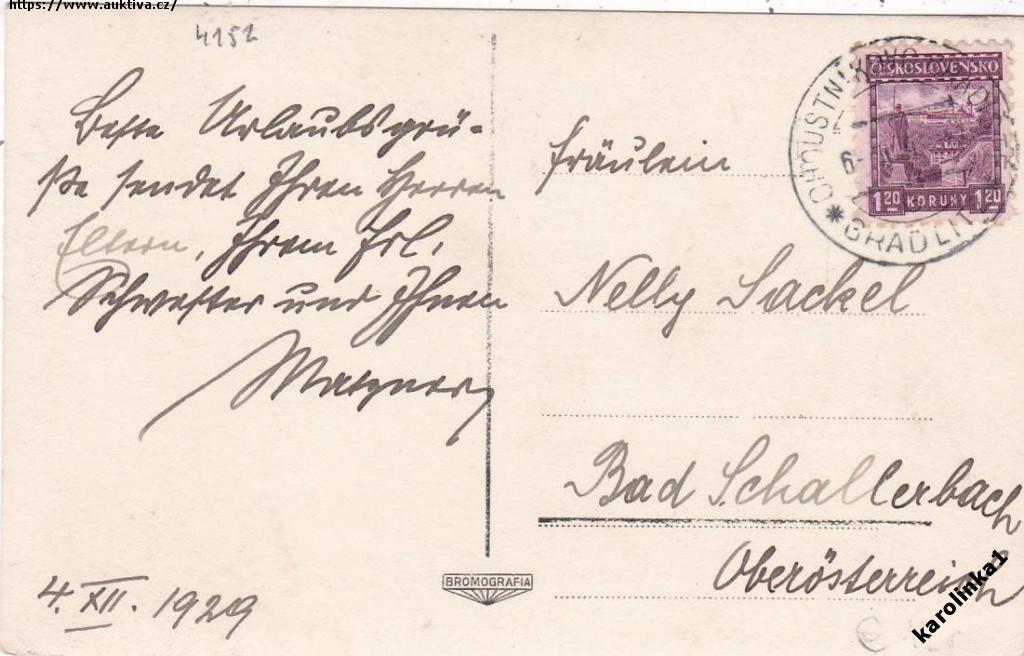 https://www.auktiva.cz/
4152
Beste Urlaubsgrü-
ße sendet Ihren Herren
Eltern, Ihrem Frl.
Schwester und Ihnen
Matzner
4. XII. 1929
BROMOGRAFIA
ČESKOSLOVENSKO
1.20 KORUNY 1.20
GRADLITZ
Fräulein
Nelly Sackel
Bad Schallerbach
Oberösterreich
karolinka1